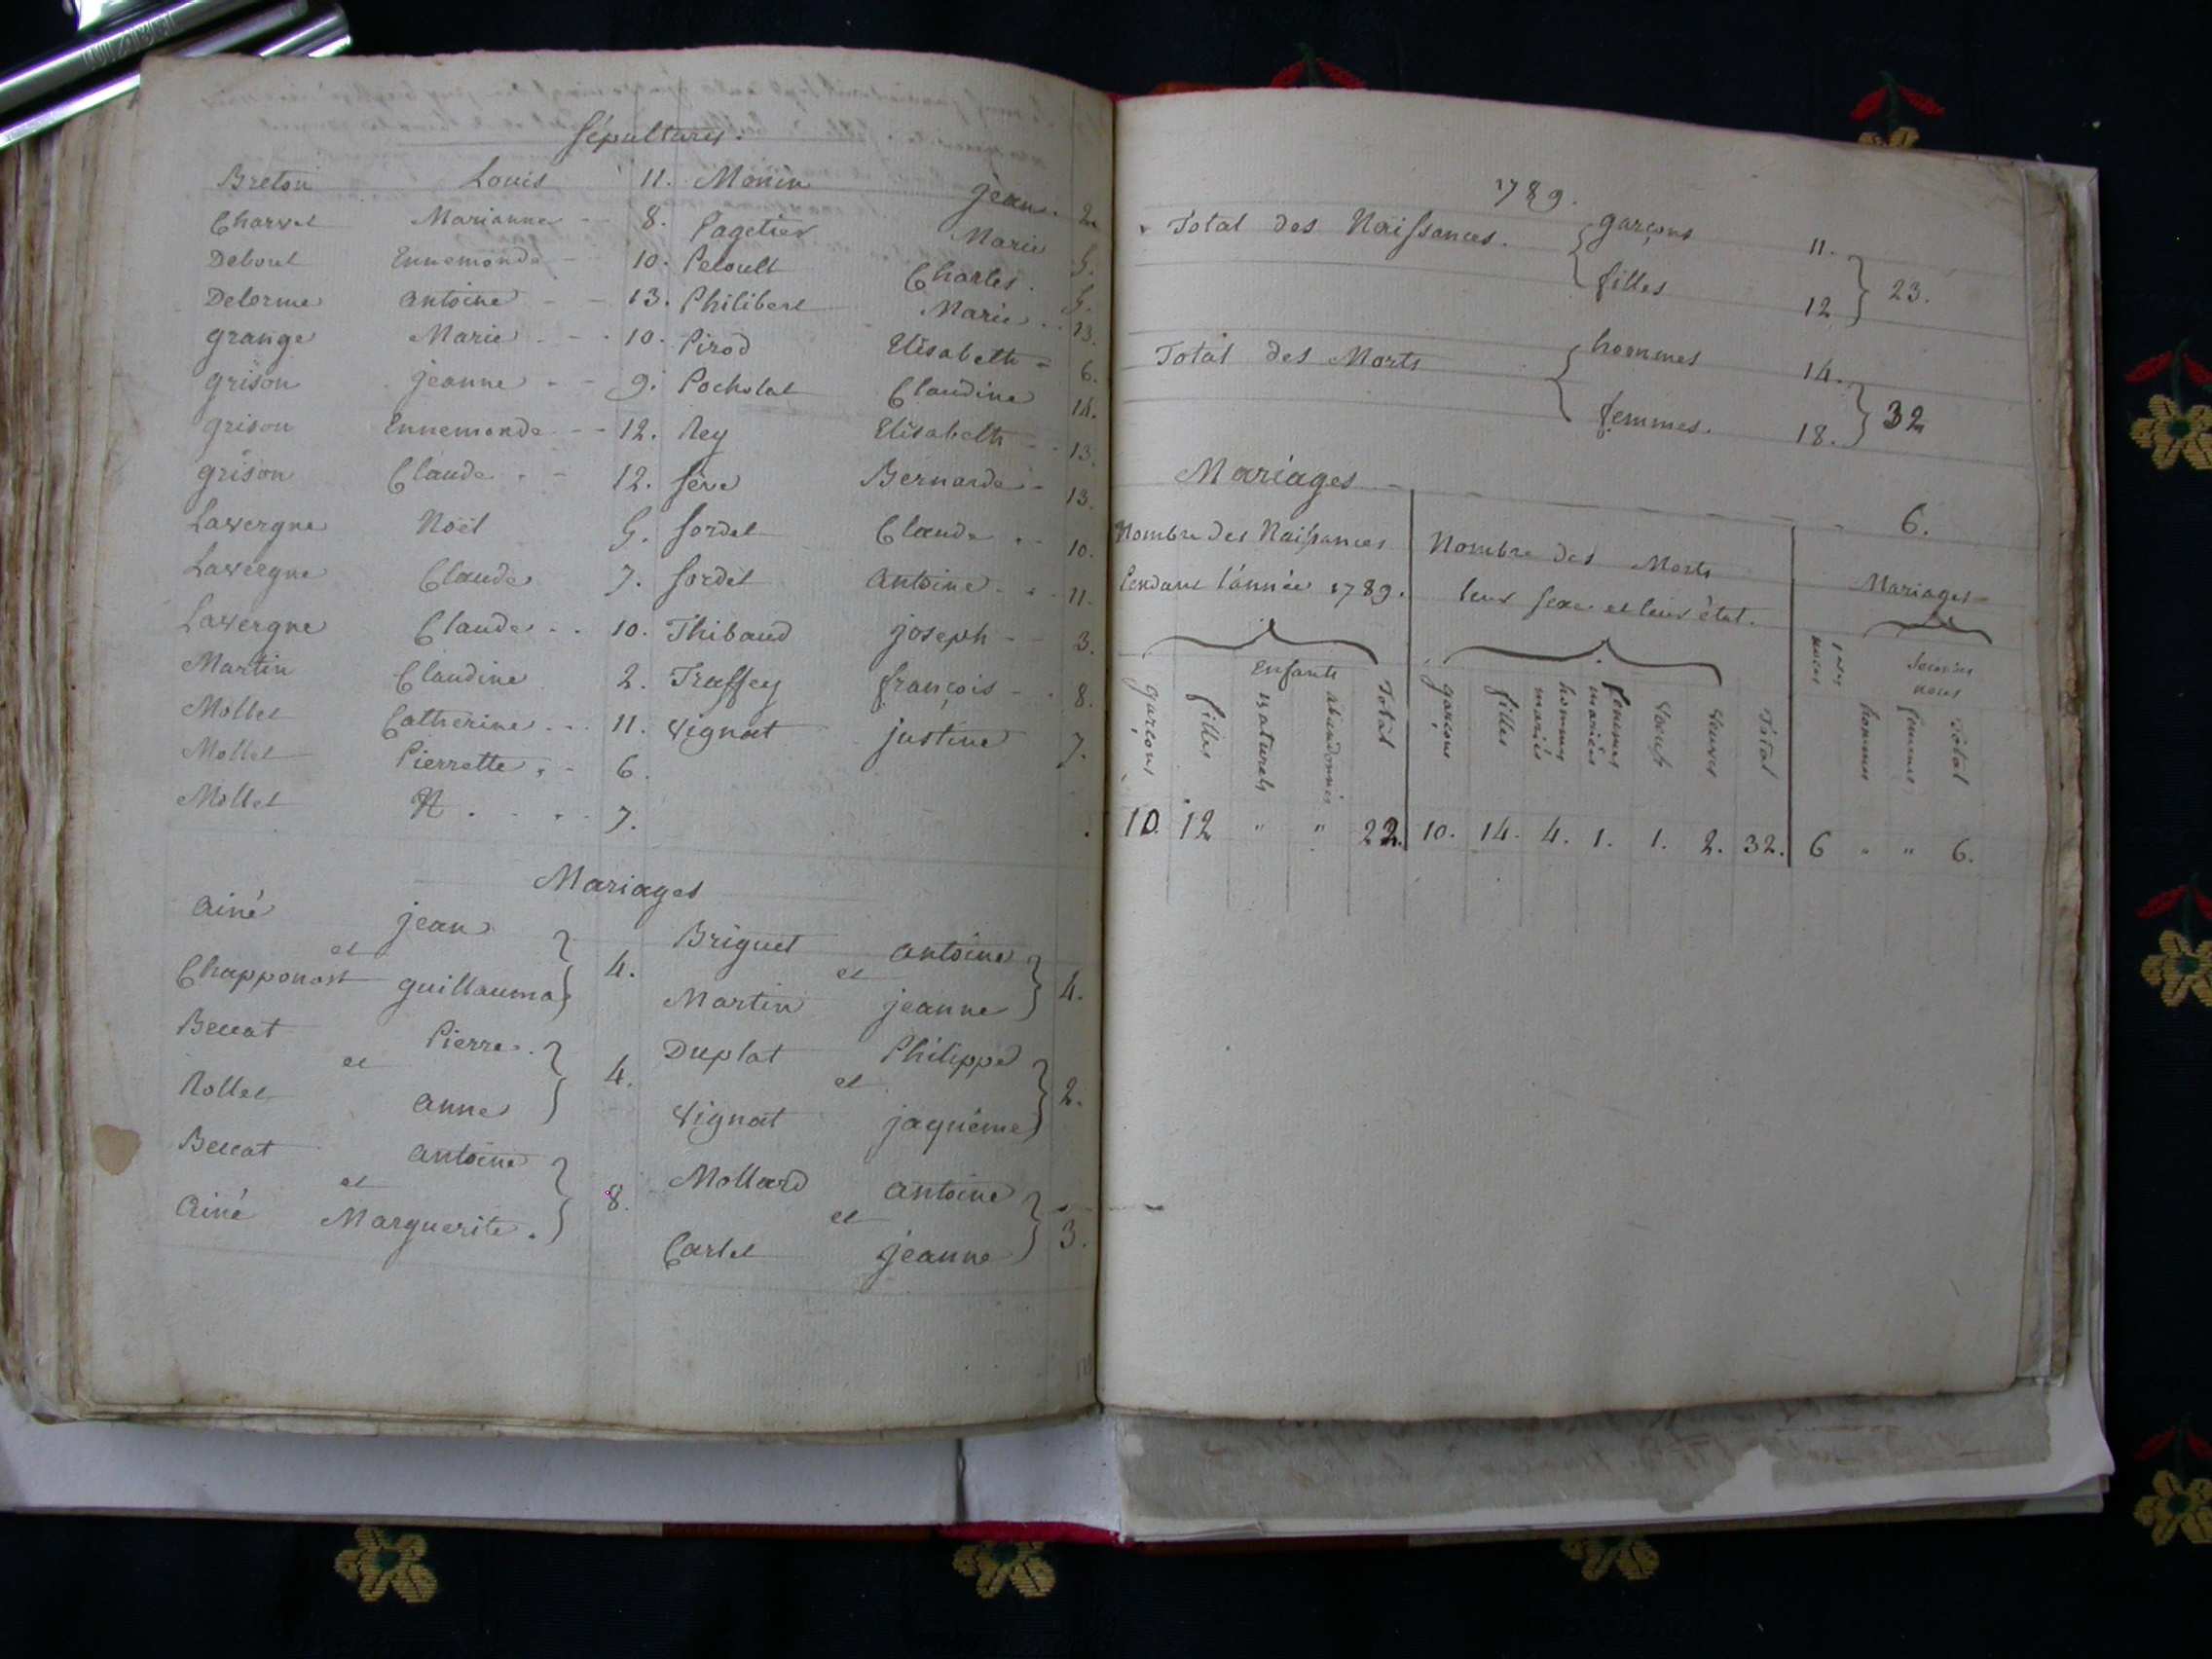 Sépultures.
Breton Louis 11.
Charvet Marianne -- 8.
Debout Ennemonde - 10.
Delorme antoine -- 13.
grange Marie --- 10.
grison jeanne -- 9.
grison Ennemonde -- 12.
grison Claude . - 12.
Lavergne Noël 5.
Lavergne Claude 7.
Lavergne Claude .. 10.
Martin Claudine 2.
Mollet Catherine ... 11.
Mollet Pierrette . - 6.
Mollet N . . . . 7.
Monin jean. 2
Pagetier Marie 5.
Peloult Charles. 5.
Philibert Marie .. 13.
Pirod Elisabeth = 6.
Pocholat Claudine 14.
Rey Elisabeth -- 13.
seve Bernarde - 13.
sordet Claude .. 10.
sordet antoine . . . 11.
Thibaud joseph -- 3.
Traffey françois - . 8.
Vignat justine 7.
Mariages
ainé jean
et
Chapponost guillauma } 4.
Beccat Pierre.
et
Rollet anne } 4.
Beccat antoine
et
ainé Marguerite. } 8.
Briguet antoine
et
Martin jeanne } 4.
Duplat Philippe
et
Vignat jaquême } 2.
Mollard antoine
et
Cartet jeanne } 3.
1789.
Total des Naissances. { garçons 11.
filles 12 } 23.
Total des Morts { hommes 14.
femmes. 18. } 32
Mariages - - - - - 6.
Nombre des Naissances
Pendant l'année 1789.
Nombre des Morts
leur sexe et leur état.
Mariages
garçons filles Enfants naturels abandonnés Total
garçons filles hommes mariés femmes mariées Veufs Veuves Total
1eres noces secondes noces hommes femmes Total
10. 12 " " 22. 10. 14. 4. 1. 1. 2. 32. 6 " " 6.